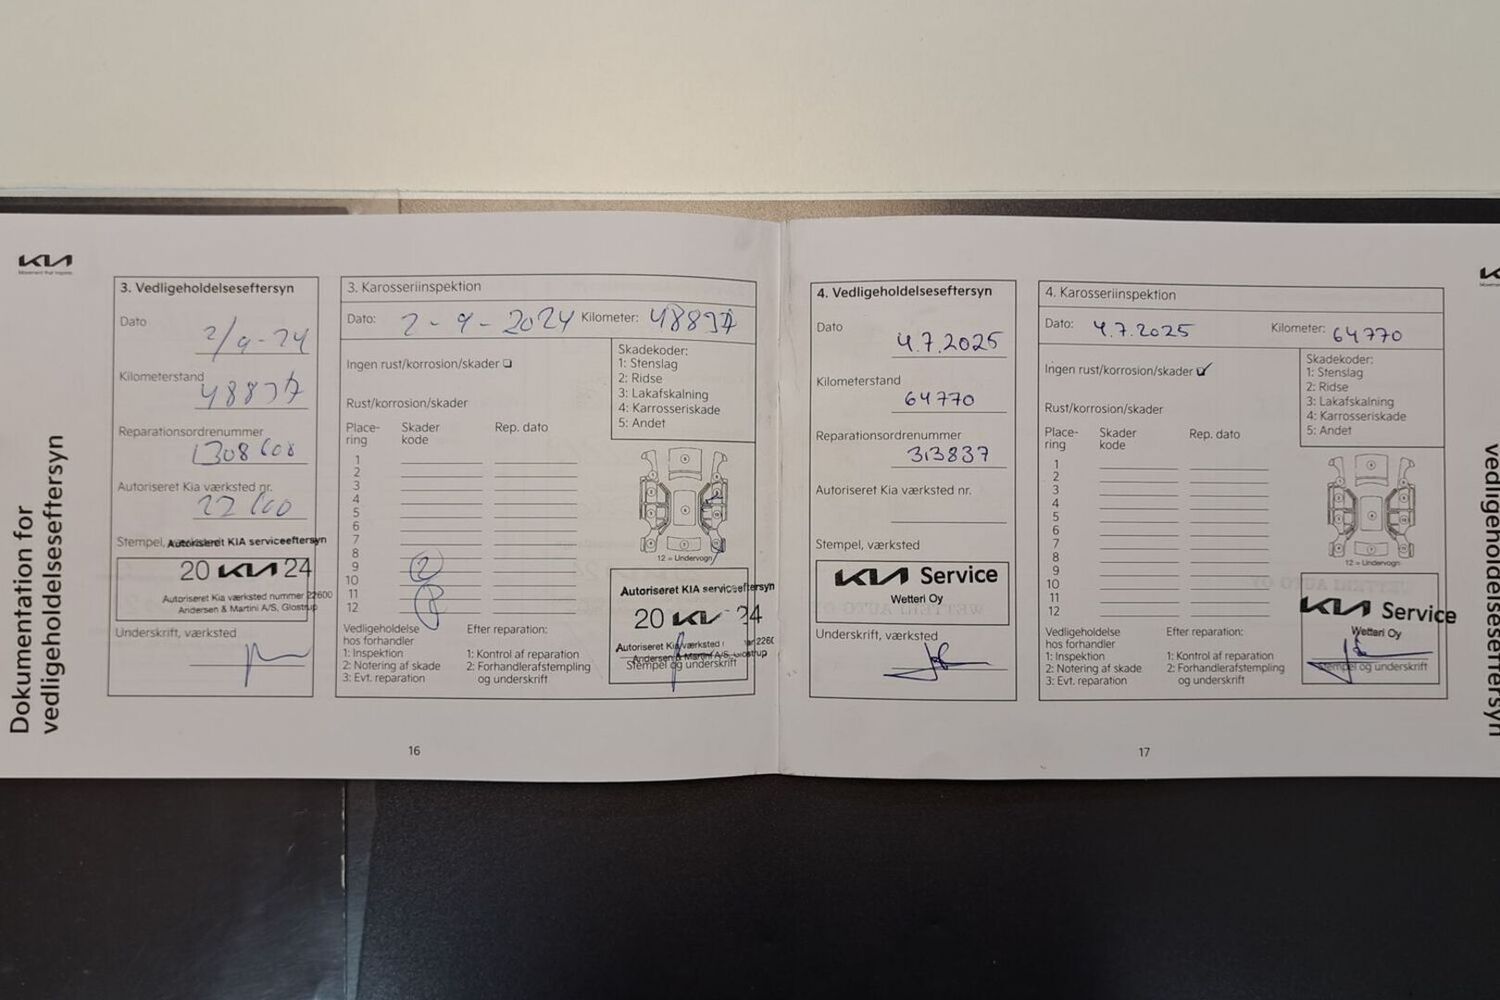 KIA
Movement that inspires
Dokumentation for
vedligeholdelseseftersyn
3. Vedligeholdelseseftersyn
Dato
2/9-24
Kilometerstand
48897
Reparationsordrenummer
1308608
Autoriseret Kia værksted nr.
22600
Stempel,
Autoriseret KIA serviceeftersyn
20 KIA 24
Autoriseret Kia værksted nummer 22600
Andersen & Martini A/S, Glostrup
Underskrift, værksted
3. Karosseriinspektion
Dato: 2-9-2024 Kilometer: 48897
Ingen rust/korrosion/skader
Rust/korrosion/skader
Place-
ring
Skader
kode
Rep. dato
1
2
3
4
5
6
7
8
9
10
11
12
2
Skadekoder:
1: Stenslag
2: Ridse
3: Lakafskalning
4: Karrosseriskade
5: Andet
12 = Undervogn
Vedligeholdelse
hos forhandler
1: Inspektion
2: Notering af skade
3: Evt. reparation
Efter reparation:
1: Kontrol af reparation
2: Forhandlerafstempling
og underskrift
Autoriseret KIA serviceeftersyn
20 KIA 24
Autoriseret Kia værksted
Andersen & Martini A/S, Glostrup
Stempel og underskrift
16
4. Vedligeholdelseseftersyn
Dato
4.7.2025
Kilometerstand
64770
Reparationsordrenummer
313837
Autoriseret Kia værksted nr.
Stempel, værksted
KIA Service
Wetteri Oy
Underskrift, værksted
4. Karosseriinspektion
Dato: 4.7.2025 Kilometer: 64770
Ingen rust/korrosion/skader
Rust/korrosion/skader
Place-
ring
Skader
kode
Rep. dato
1
2
3
4
5
6
7
8
9
10
11
12
Skadekoder:
1: Stenslag
2: Ridse
3: Lakafskalning
4: Karrosseriskade
5: Andet
12 = Undervogn
Vedligeholdelse
hos forhandler
1: Inspektion
2: Notering af skade
3: Evt. reparation
Efter reparation:
1: Kontrol af reparation
2: Forhandlerafstempling
og underskrift
KIA Service
Wetteri Oy
Stempel og underskrift
17
vedligeholdelseseftersyn